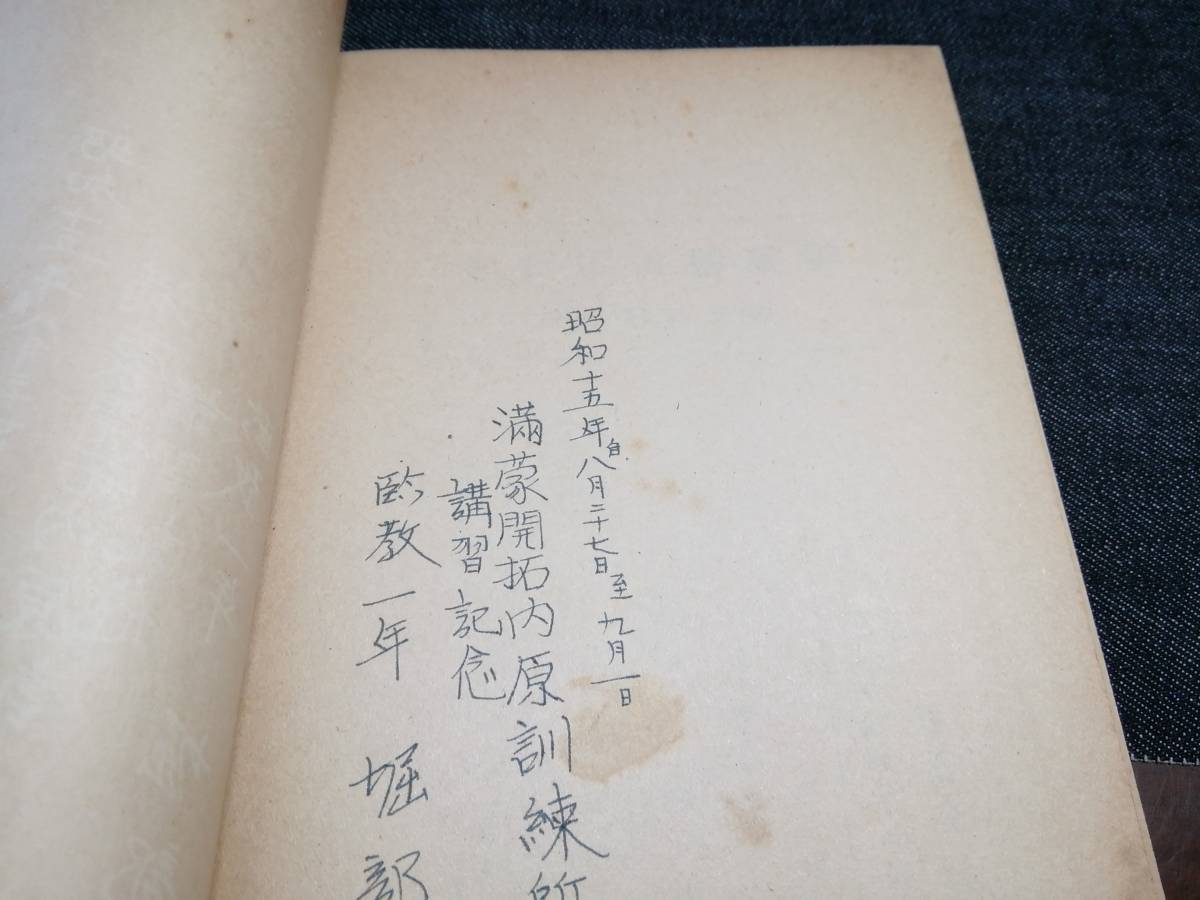 昭和十五年自八月二十七日至九月一日
満蒙開拓内原訓練所
講習記念
臨教一年 堀部